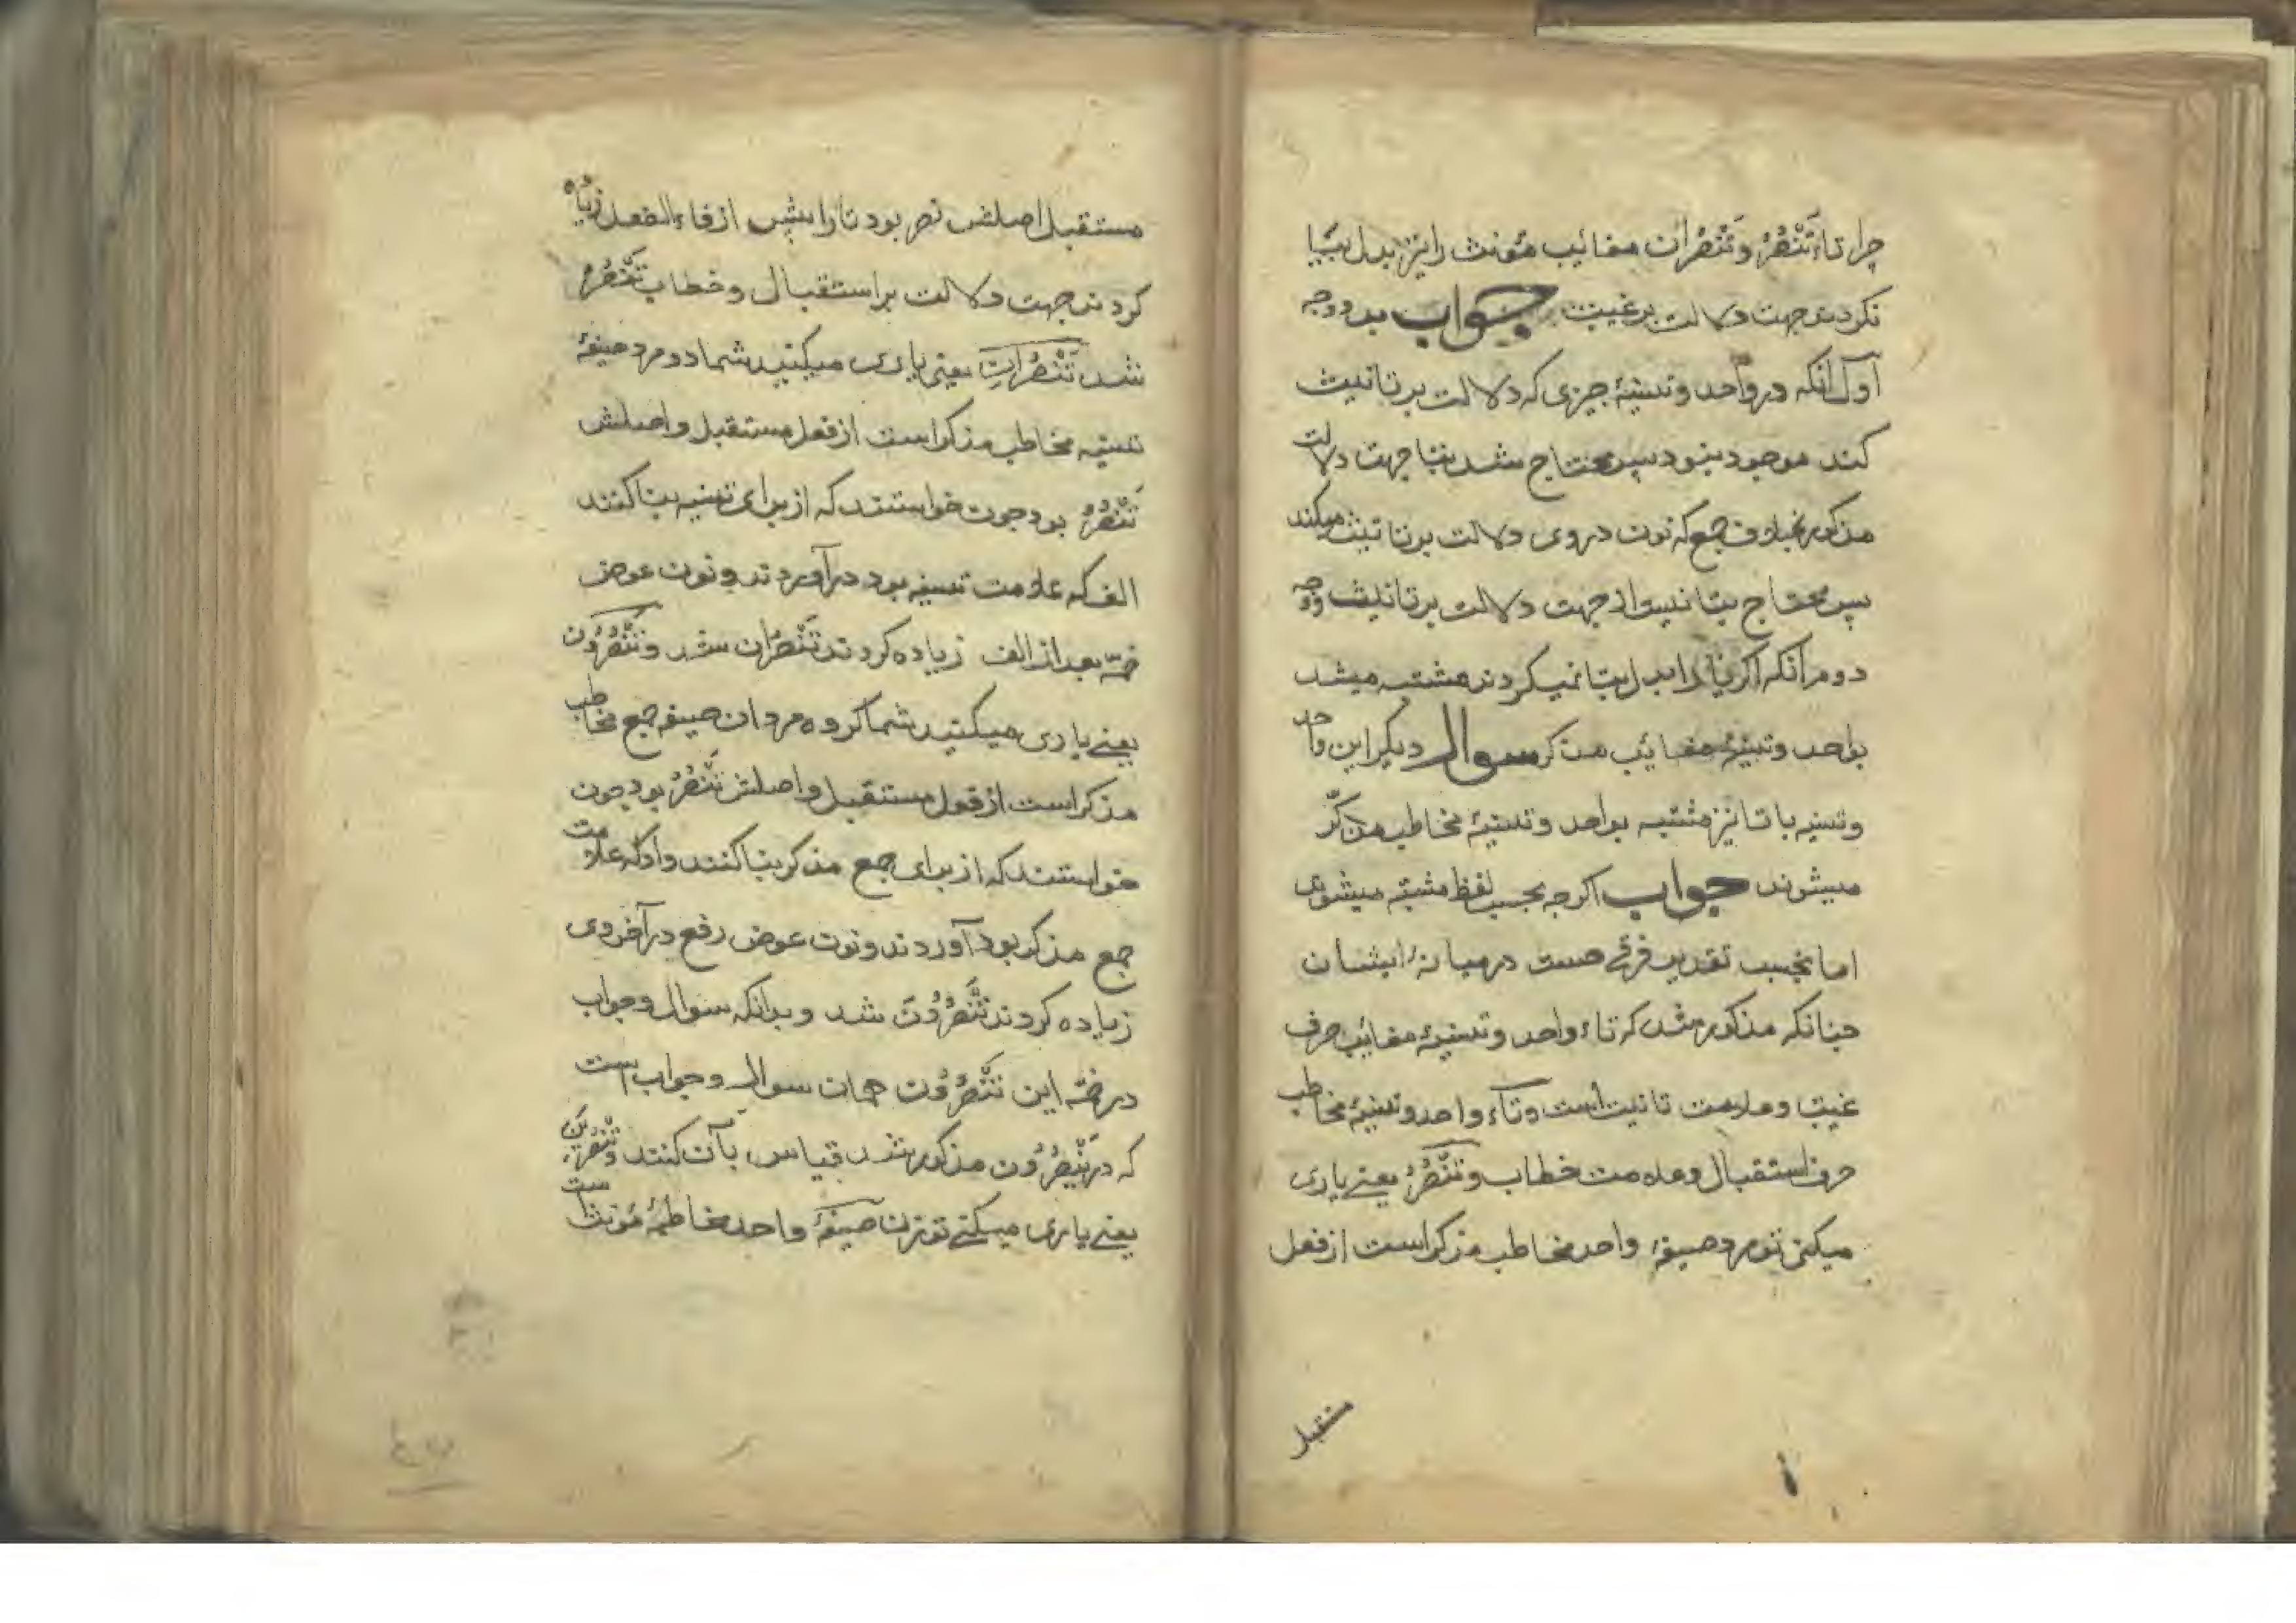 چرا تاء تَنْصُرُ و تَنْصُران مغائب مؤنث را نیز بدل بیا
نکردند جهت دلالت بر غیبت جواب بدو وجه
اول آنکه در واحد و تسنیهٔ چیزی که دلالت بر تانیث
کند موجود نبود پس محتاج شد بتا جهت دلالت
مذکور بخلاف جمع که نون در وی دلالت بر تانیث میکند
پس محتاج بتا نیست از جهت دلالت بر تانیث وجه
دوم آنکه اگر یا را بدل بتا نمیکردند مشتبه میشد
بواحد و تسنیهٔ مغایب مذکر سوال دیگر این واحد
و تسنیه با تا نیز مشتبه بواحد و تسنیهٔ مخاطب مذکّر
میشوند جواب اکرچه بحسب لفظ مشتبه میشوند
اما بحسب تقدیر فرقی هست در میانهٔ ایشان
چنانکه مذکور شد که تاء واحد و تسنیهٔ مغائب حرف
غیبت و علامت تانیت است و تاء واحد و تسنیهٔ مخاطب
حرف استقبال و علامت خطاب و تَنْصُرُ یعنے یاری
میکنی تو مرد صیغهٔ واحد مخاطب مذکر است از فعل
مستقبل
مستقبل اصلش نصر بود تا را پیش از فاء الفعل زیاده
کردند جهت دلالت بر استقبال و خطاب تَنْصُرُ
شد تَنْصُرانِ یعنی یاری میکنید شما دو مرد صیغهٔ
تسنیه مخاطب مذکر است از فعل مستقبل و اصلش
تَنْصُرُ بود چون خواستند که از برای تسنیه بنا کنند
الف که علامت تسنیه بود در آوردند و نون عوض
ضمّه بعد از الف زیاده کردند تَنْصُران شد و تَنْصُرُون
یعنے یاری میکنید شما کروه مردان صیغه جمع مخاطب
مذکر است از قول مستقبل و اصلش تَنْصُرُ بود چون
خواستند که از برای جمع مذکر بنا کنند واو که علامت
جمع مذکر بود آوردند و نون عوض رفع در آخر وی
زیاده کردند تَنْصُرُونَ شد و بدانکه سوال و جواب
در ضمّه این تَنْصُرُون همان سوال و جواب است
که در یَنْصُرُون مذکور شد قیاس بآن کنند و تَنْصُرین
یعنے یاری میکنے تو زن صیغهٔ واحد مخاطبهٔ مؤنث است